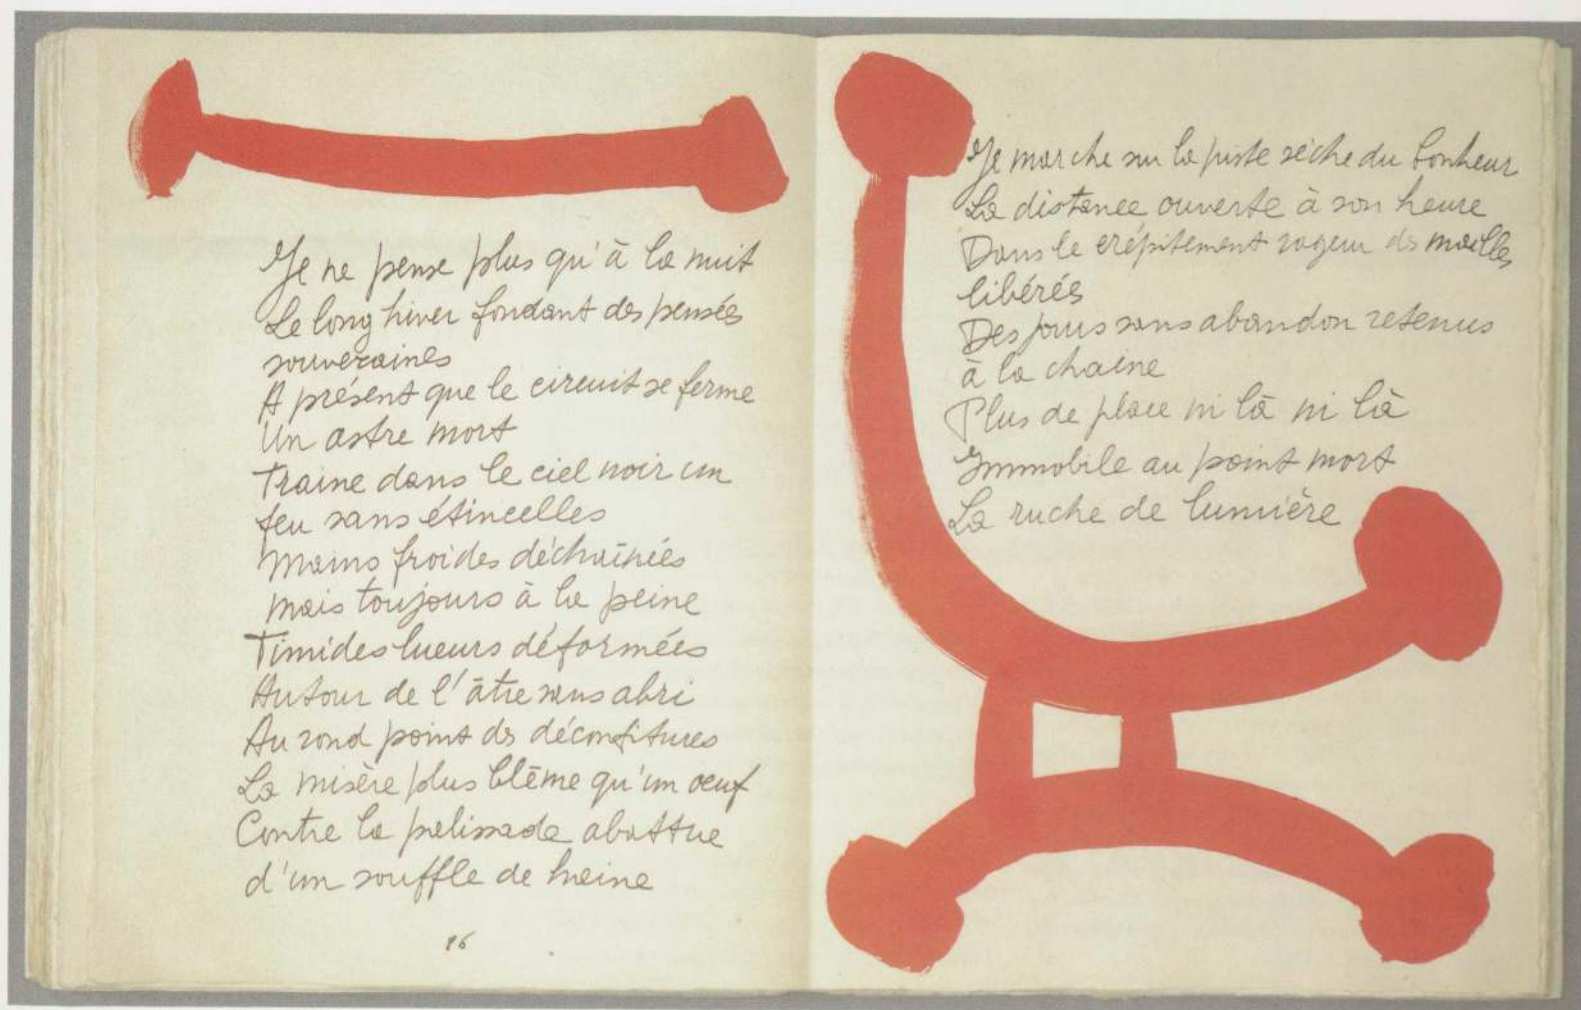 Je ne pense plus qu'à la nuit
Le long hiver fondant des pensées
souveraines
A présent que le circuit se ferme
Un astre mort
Traine dans le ciel noir un
feu sans étincelles
Mains froides déchaînées
Mais toujours à la peine
Timides lueurs déformées
Autour de l'âtre sans abri
Au rond point des déconfitures
La misère plus blême qu'un oeuf
Contre la palissade abattue
d'un souffle de haine
16
Je marche sur la piste sèche du bonheur
La distance ouverte à son heure
Dans le crépitement rageur des mailles
libérés
Des jours sans abandon retenus
à la chaine
Plus de place ni là ni là
Immobile au point mort
La ruche de lumière